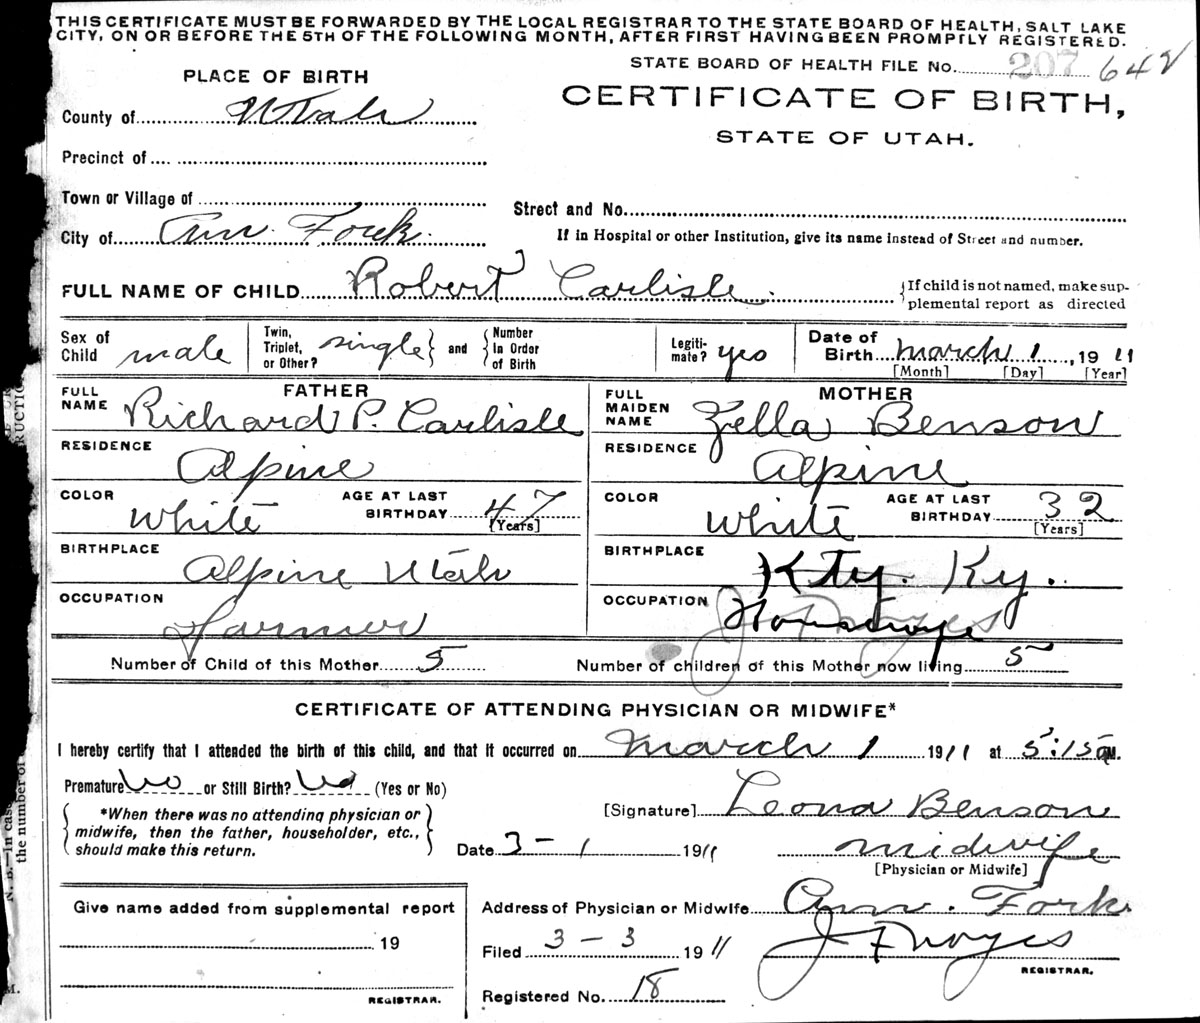 THIS CERTIFICATE MUST BE FORWARDED BY THE LOCAL REGISTRAR TO THE STATE BOARD OF HEALTH, SALT LAKE
CITY, ON OR BEFORE THE 5TH OF THE FOLLOWING MONTH, AFTER FIRST HAVING BEEN PROMPTLY REGISTERED.
STATE BOARD OF HEALTH FILE No. 207 642
PLACE OF BIRTH
CERTIFICATE OF BIRTH,
County of Utah
STATE OF UTAH.
Precinct of
Town or Village of
Street and No.
City of Am. Fork.
If in Hospital or other Institution, give its name instead of Street and number.
FULL NAME OF CHILD Robert Carlisle.
{If child is not named, make sup-
plemental report as directed
Sex of Child male
Twin, Triplet, or Other? single } and { Number In Order of Birth
Legiti-mate? yes
Date of Birth March 1, 1911
[Month] [Day] [Year]
FATHER
FULL NAME Richard P. Carlisle
MOTHER
FULL MAIDEN NAME Zella Benson
RESIDENCE Alpine
RESIDENCE Alpine
COLOR White AGE AT LAST BIRTHDAY 47 [Years]
COLOR White AGE AT LAST BIRTHDAY 32 [Years]
BIRTHPLACE Alpine Utah
BIRTHPLACE Kty. Ky.
OCCUPATION Farmer
OCCUPATION Housewife
Number of Child of this Mother 5
Number of children of this Mother now living 5
CERTIFICATE OF ATTENDING PHYSICIAN OR MIDWIFE*
I hereby certify that I attended the birth of this child, and that it occurred on March 1 1911 at 5:15 a M.
Premature No or Still Birth? No (Yes or No)
*When there was no attending physician or
midwife, then the father, householder, etc.,
should make this return.
[Signature] Leona Benson
Date 3-1 1911
midwife
[Physician or Midwife]
Give name added from supplemental report
19
REGISTRAR.
Address of Physician or Midwife Am. Fork
Filed 3-3 1911
J F Noyes
REGISTRAR.
Registered No. 18
N. B.—In case
the number of